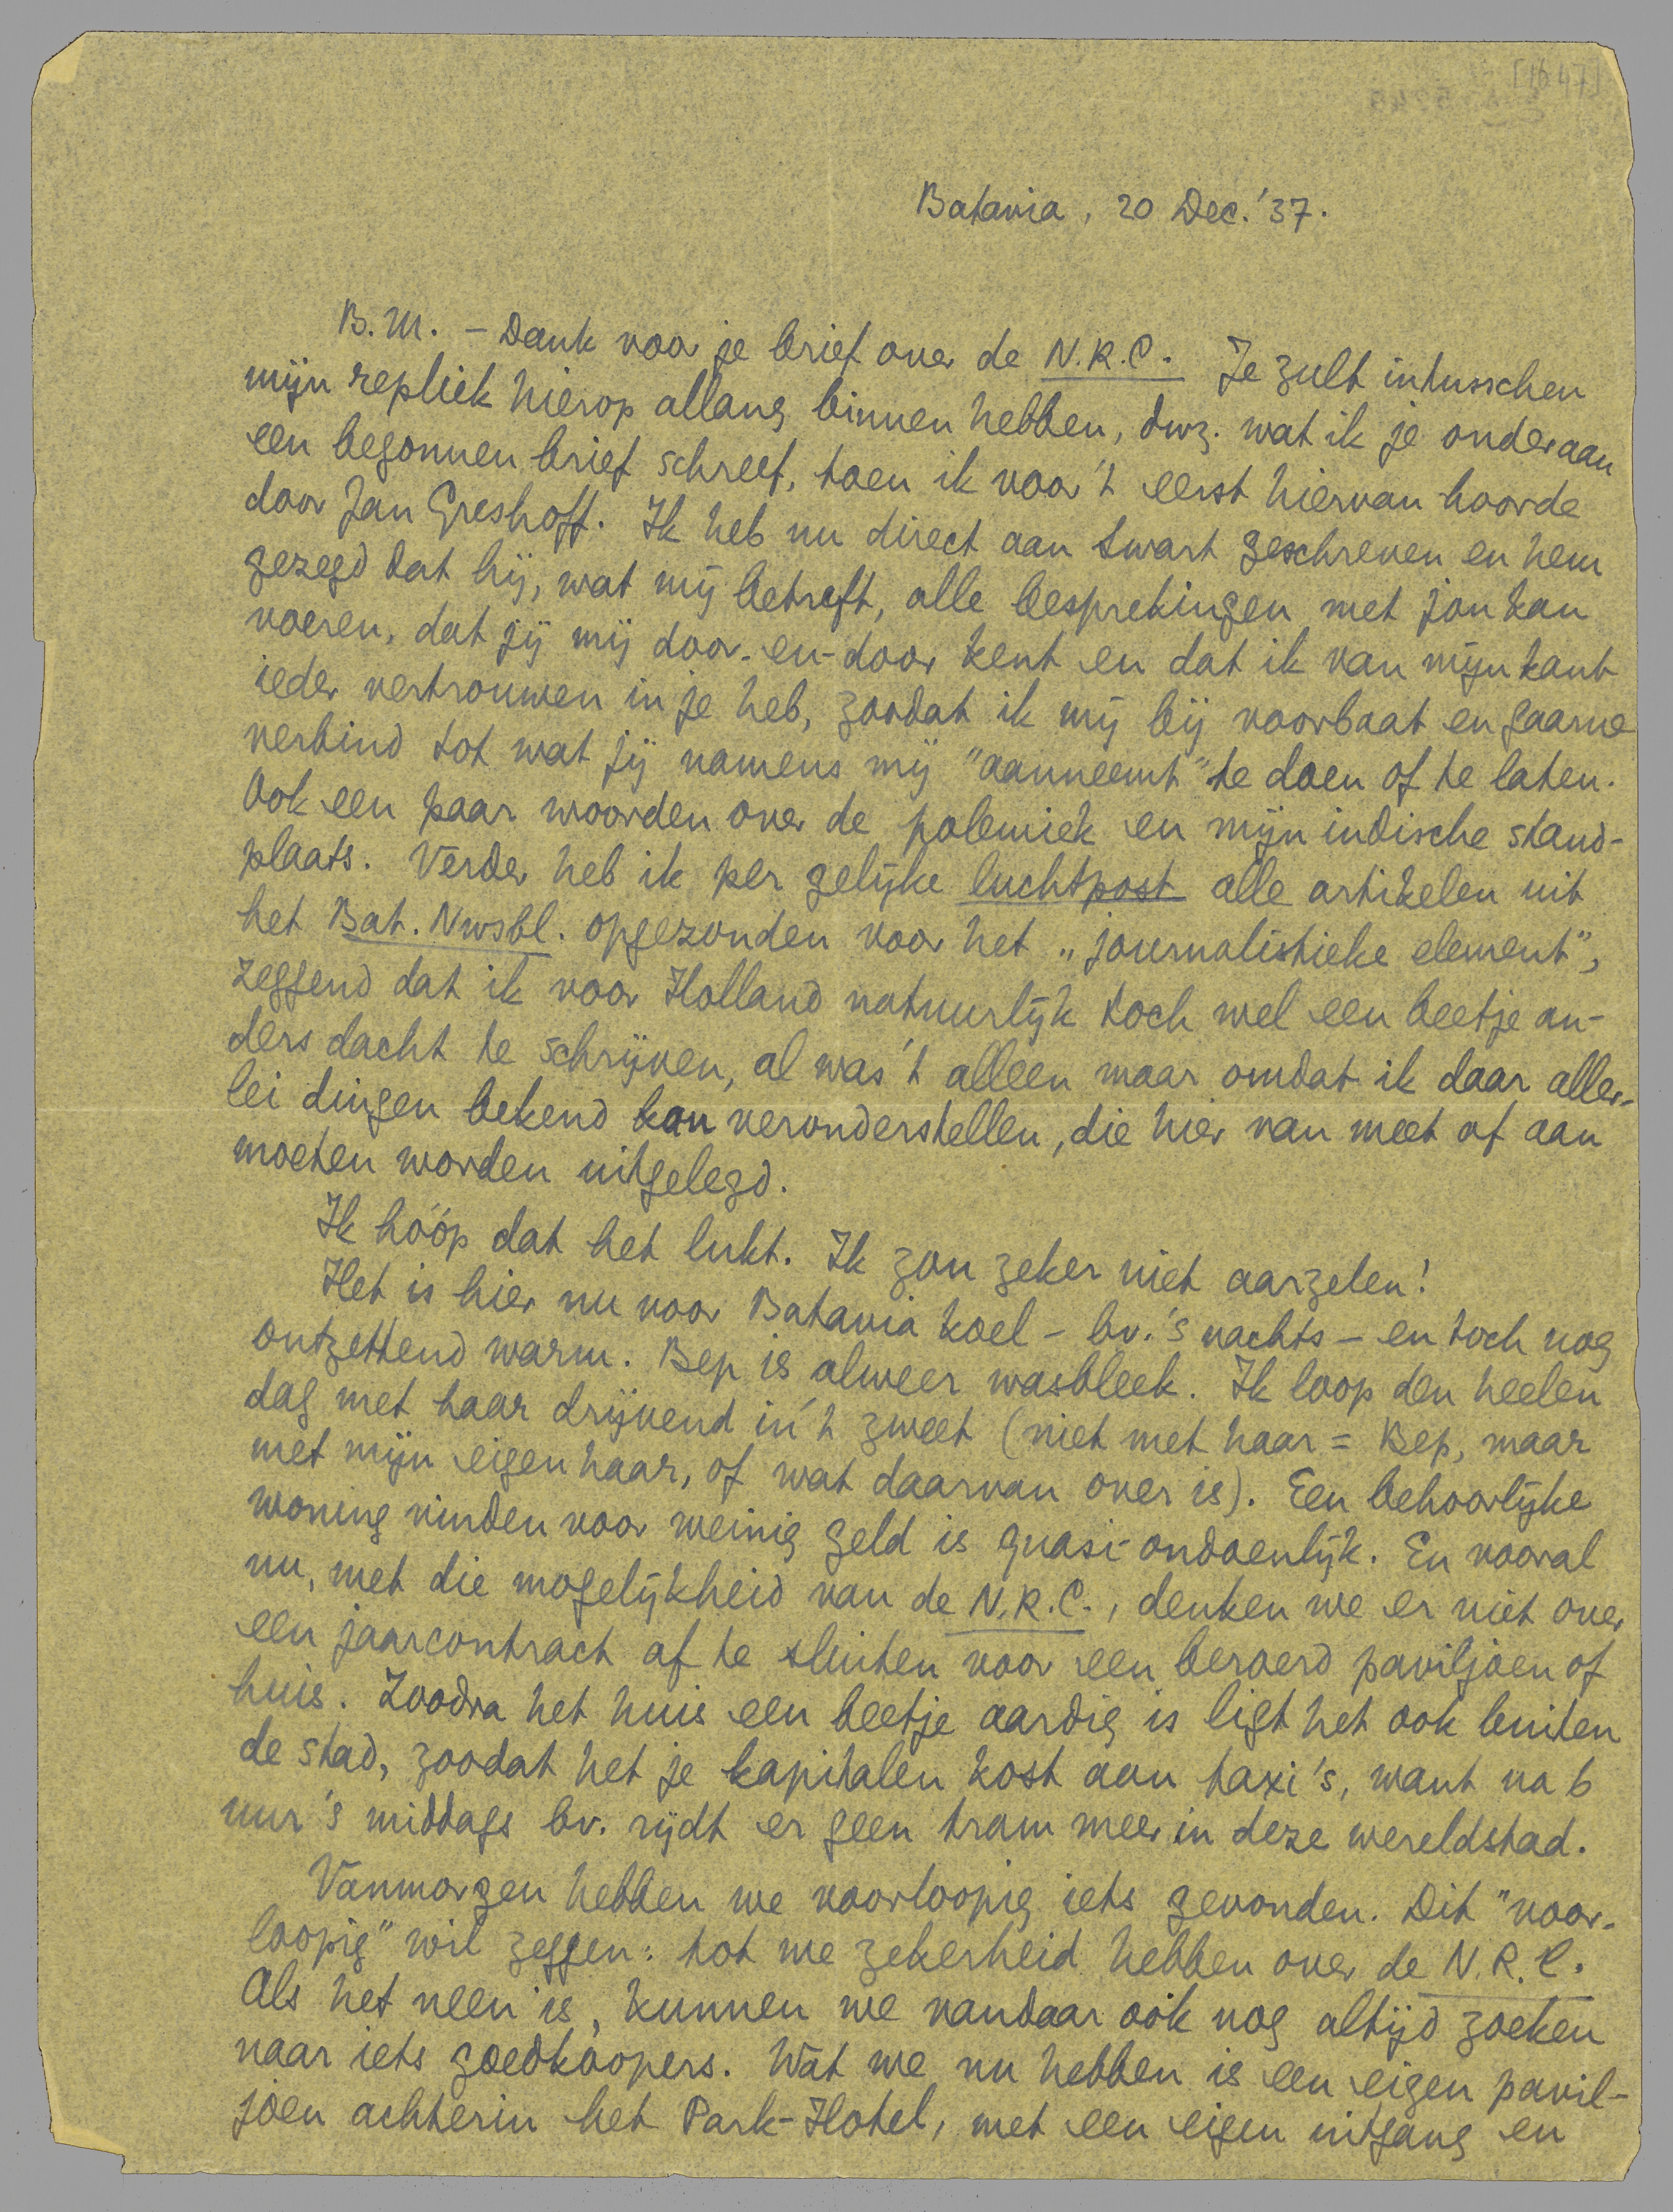 [1647]
Batavia, 20 Dec. '37.
B.M. - Dank voor je brief over de N.R.C. Je zult intusschen
mijn repliek hierop allang binnen hebben, dwz. wat ik je onderaan
een begonnen brief schreef, toen ik voor 't eerst hiervan hoorde
door Jan Greshoff. Ik heb nu direct aan Swart geschreven en hem
gezegd dat hij, wat mij betreft, alle besprekingen met jou kan
voeren, dat jij mij door-en-door kent en dat ik van mijn kant
ieder vertrouwen in je heb, zoodat ik mij bij voorbaat en gaarne
verbind tot wat jij namens mij "aanneemt" te doen of te laten.
Ook een paar woorden over de polemiek en mijn indische stand-
plaats. Verder heb ik per gelijke luchtpost alle artikelen uit
het Bat. Nwsbl. opgezonden voor het „journalistieke element",
zeggend dat ik voor Holland natuurlijk toch wel een beetje an-
ders dacht te schrijven, al was 't alleen maar omdat ik daar aller-
lei dingen bekend kan veronderstellen, die hier van meet af aan
moeten worden uitgelegd.
Ik hóóp dat het lukt. Ik zou zeker niet aarzelen!
Het is hier nu voor Batavia koel - bv. 's nachts - en toch nog
ontzettend warm. Bep is alweer wasbleek. Ik loop den heelen
dag met haar drijvend in 't zweet (niet met haar = Bep, maar
met mijn eigen haar, of wat daarvan over is). Een behoorlijke
woning vinden voor weinig geld is quasi-ondoenlijk. En vooral
nu, met die mogelijkheid van de N.R.C., denken we er niet over
een jaarcontract af te sluiten voor een beroerd paviljoen of
huis. Zoodra het huis een beetje aardig is ligt het ook buiten
de stad, zoodat het je kapitalen kost aan taxi's, want na 6
uur 's middags bv. rijdt er geen tram meer in deze wereldstad.
Vanmorgen hebben we voorloopig iets gevonden. Dit "voor-
loopig" wil zeggen: tot we zekerheid hebben over de N.R.C.
Als het neen is, kunnen we vandaar ook nog altijd zoeken
naar iets goedkoopers. Wat we nu hebben is een eigen pavil-
joen achterin het Park-Hotel, met een eigen uitgang en